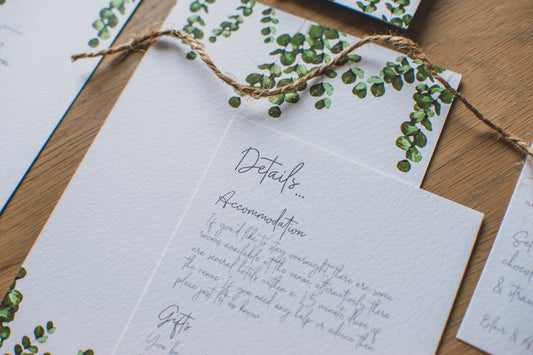 Details...
Accommodation
If you'd like to stay overnight there are some
rooms available at the venue, alternatively there
are several hotels within a 15 minute drive of
the venue. If you need any help or advice then
please just let us know
Gifts
You
Sel
chocol
& stra
Blair & A